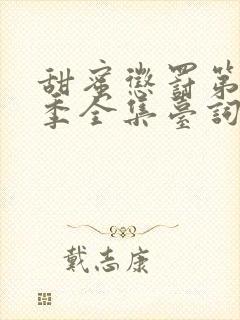 甜蜜懲罰第
季全集臺詞
戴志康